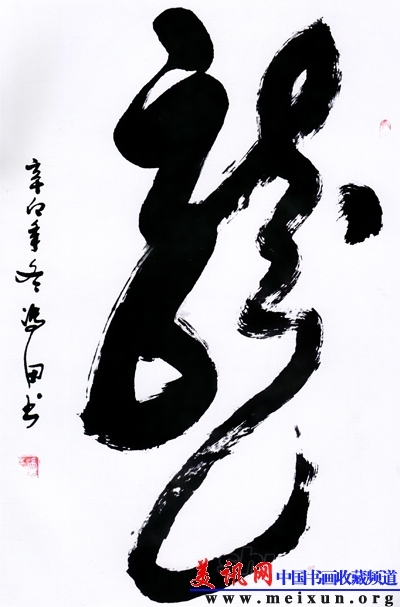 龍
辛卯年冬冯田书
美讯网 中国书画收藏频道
www.meixun.org